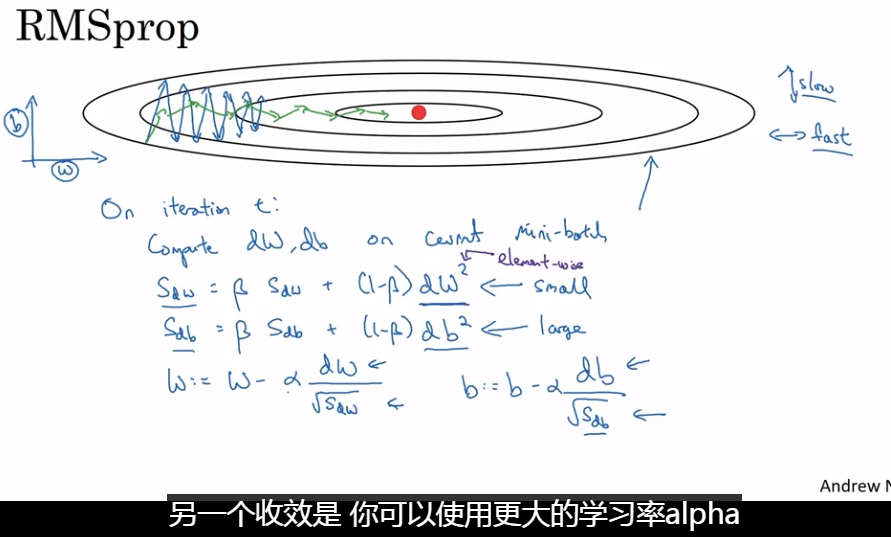 RMSprop
b
w
slow
fast
On iteration t:
Compute dW, db on current mini-batch
element-wise
Sdw = β Sdw + (1-β) dW² ← small
Sdb = β Sdb + (1-β) db² ← large
W := W - α dW/√Sdw ← b := b - α db/√Sdb ←
Andrew N
另一个收效是 你可以使用更大的学习率alpha